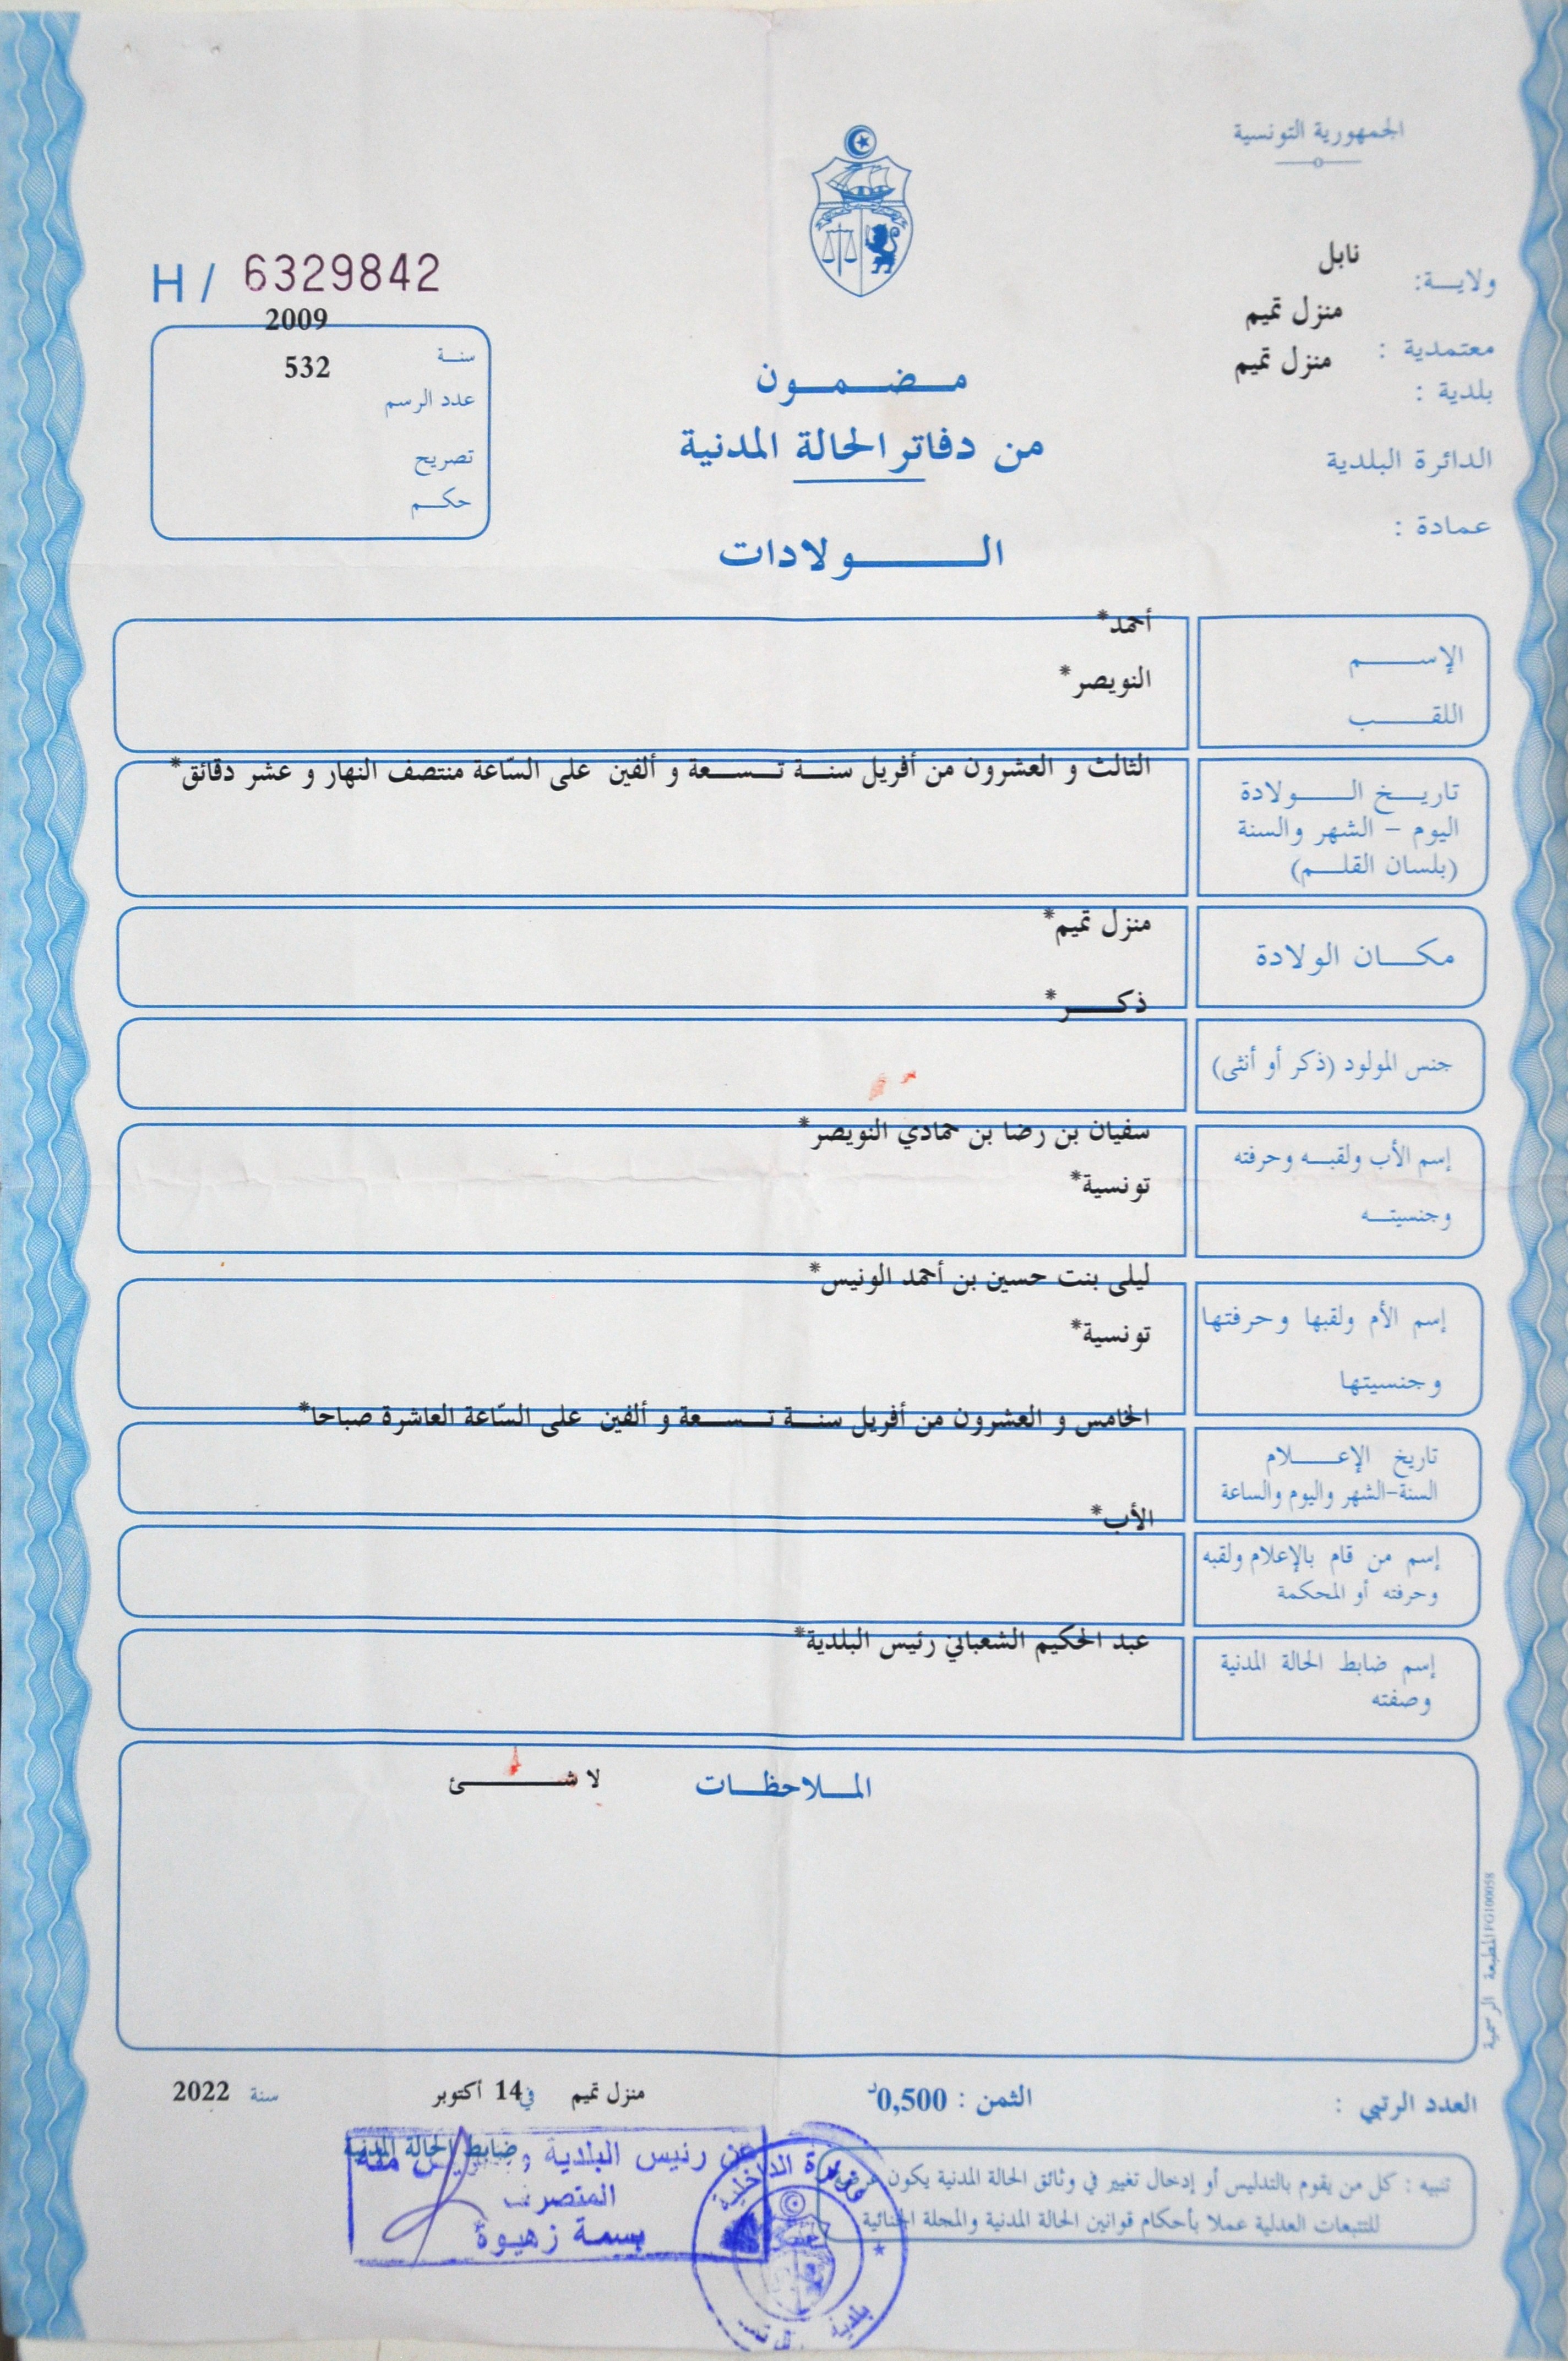 الجمهورية التونسية
ولاية: نابل
معتمدية : منزل تميم
بلدية : منزل تميم
الدائرة البلدية
عمادة :
H / 6329842
سنة 2009
عدد الرسم 532
تصريح
حكم
مضمون
من دفاتر الحالة المدنية
الولادات
الإسم أحمد*
اللقب النويصر*
تاريخ الولادة الثالث و العشرون من أفريل سنة تسعة و ألفين على السّاعة منتصف النهار و عشر دقائق*
اليوم - الشهر والسنة
(بلسان القلم)
مكان الولادة منزل تميم*
جنس المولود (ذكر أو أنثى) ذكر*
إسم الأب ولقبه وحرفته سفيان بن رضا بن حمادي النويصر*
وجنسيته تونسية*
إسم الأم ولقبها وحرفتها ليلى بنت حسين بن أحمد الونيس*
وجنسيتها تونسية*
تاريخ الإعلام الخامس و العشرون من أفريل سنة تسعة و ألفين على السّاعة العاشرة صباحا*
السنة-الشهر واليوم والساعة
إسم من قام بالإعلام ولقبه الأب*
وحرفته أو المحكمة
إسم ضابط الحالة المدنية عبد الحكيم الشعباني رئيس البلدية*
وصفته
الملاحظات لا شئ
المطبعة الرسمية FG100058
العدد الرتبي :
الثمن : 0,500د
منزل تميم في 14 أكتوبر سنة 2022
ضابط الحالة المدنية
عن رئيس البلدية
المتصرف
بسمة زهيوة
وزارة الداخلية
بلدية
تنبيه : كل من يقوم بالتدليس أو إدخال تغيير في وثائق الحالة المدنية يكون عرضة
للتتبعات العدلية عملا بأحكام قوانين الحالة المدنية والمجلة الجنائية